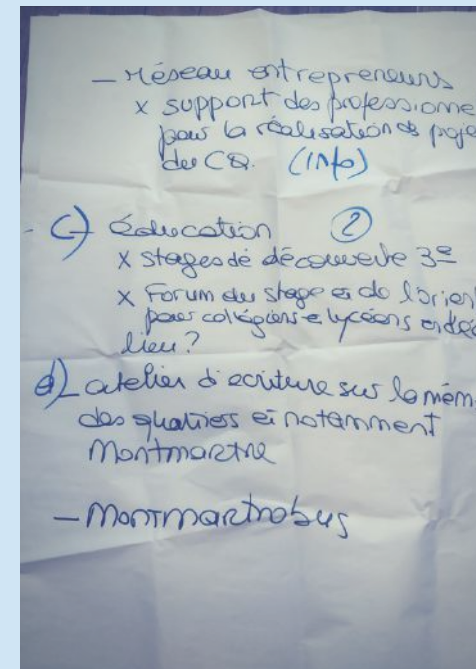 — réseau entrepreneurs
x support des professionne
pour la réalisation de proje
du CQ. (info)
- c) éducation (2)
x stages de découverte 3e
x Forum du stage et de l'orient
pour collégiens e lycéens
lieu ?
d) atelier d'ecriture sur la mém
des quartiers et notamment
Montmartre
— Montmartrobus